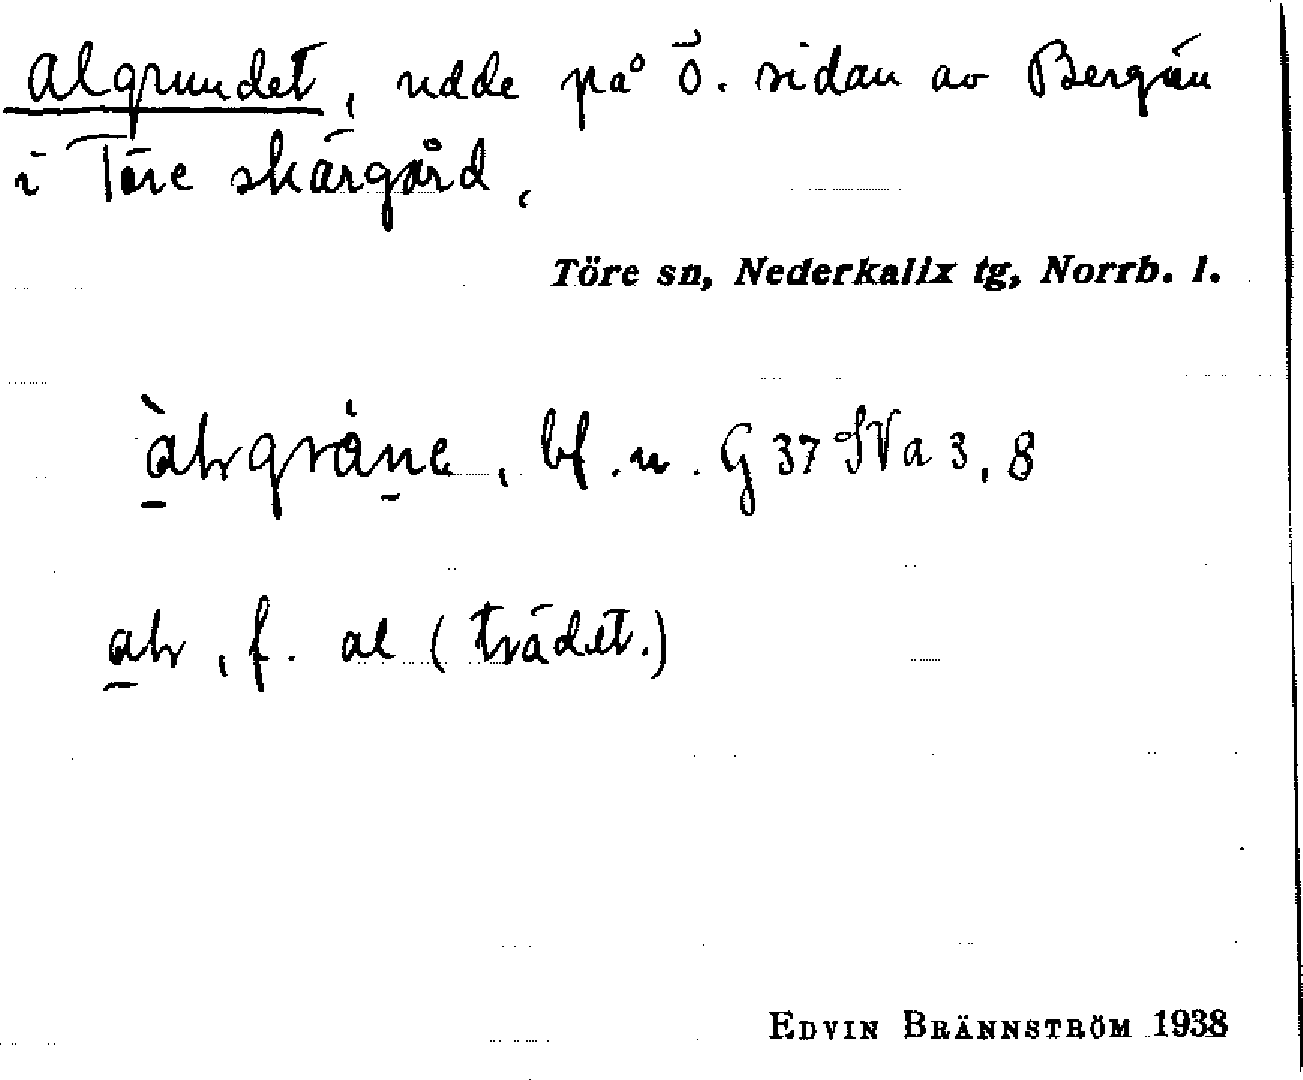 Algrundet, udde på ö. sidan av Bergön
i Töre skärgård.
Töre sn, Nederkalix tg, Norrb. l.
bf. n. G 37 SV a 3, 8
f. al (trädet.)
EDVIN BRÄNNSTRÖM 1938